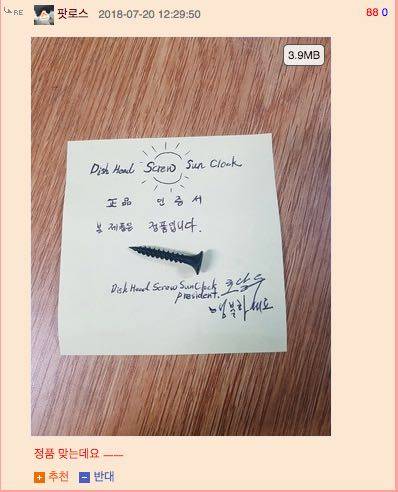 RE 팟로스 2018-07-20 12:29:50 88 0
3.9MB
Dish Head Screw Sun Clock
正品 인증서
본 제품은 정품입니다.
Dish Head Screw Sun Clock
president.
정품 맞는데요 ㅡㅡ
추천 반대